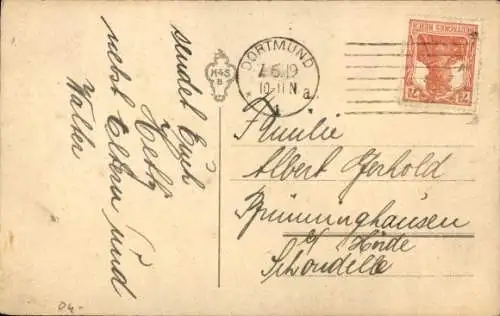 sendet Euch
Hetty
nebst Eltern und
Walter
H4S
B
DORTMUND
7.6.19
10-11 N
* a
DEUTSCHES REICH
7½
7½
Familie
Albert Gerhold
Brünninghausen
b/ Hörde
04-